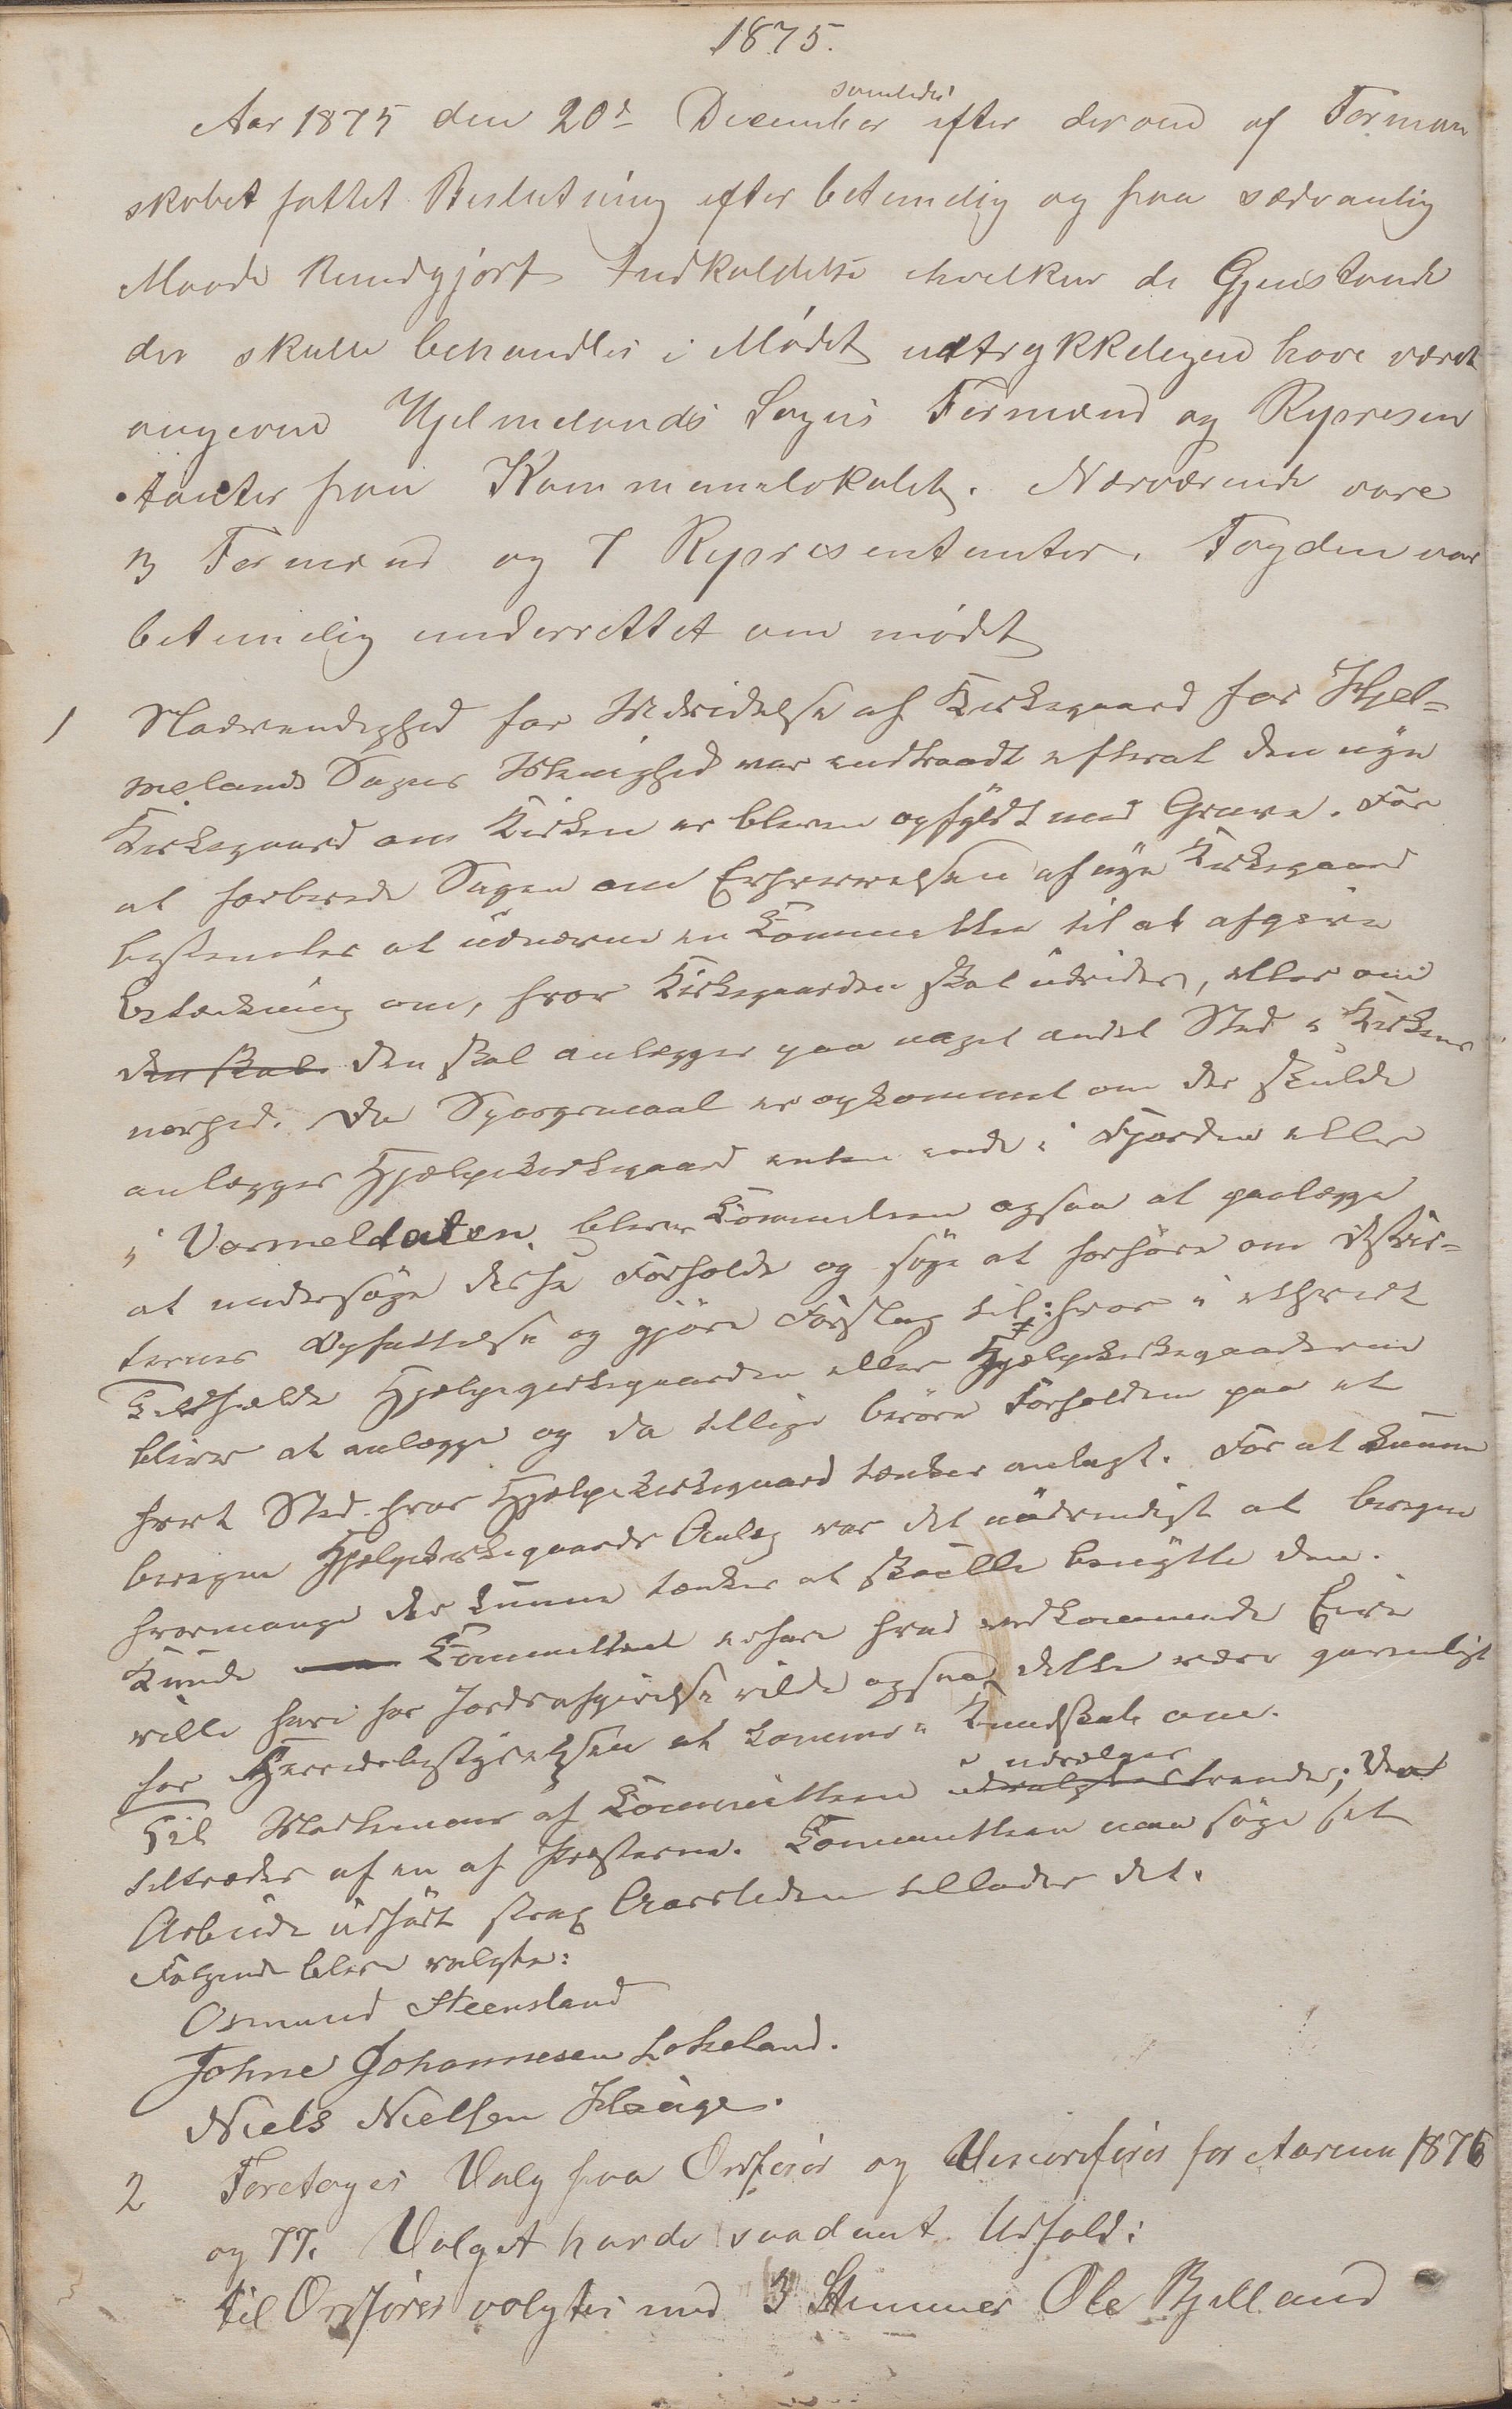 1875.
Aar 1875 den 20d December samledes efter derom af Forman
skabet fattet Beslutning efter betimelig og paa sædvanlig
Maade kundgjort Indkaldelse hvelken de Gjenstande
der skulle behandles i Mødet udtrykkeligen have været
angivne Hjelmelands Sogns Formænd og Represen
tanter paa Kommunelokalet. Nærværende vare
3 Formænd og 7 Representanter. Fogden var
betimelig underrettet om mødet
1 Nødvendighed for Udvidelse af Kirkegaard for Hjel=
melands Sogns Menighed var indtraadt efterat den nye
Kirkegaard om Kirken er bleven opfyldt med Grave. For
at forberede Sagen om Erhvervelsen af nye Kirkegaard
bestemtes at udnævne en Committee til at afgive
Betænkning om, hvor Kirkegaarden skal udvides, eller om
den skal den skal anlægges paa noget andet Sted i Kirkens
nærhed. Da Spørgsmaal er opkommet om der skulde
anlægges Hjælpekirkegaard enten inde i Fjorden eller
i Vormeldalen, bliver Committeen ogsaa at paalægge
at undersøge disse Forholde og søge at forhøre om Distric=
ternes Opfattelse og gjøre Forslag til: hvor i ethvert
Tilfælde Hjælpekirkegaarden eller Hjælpekirkegaardene
bliver at anlægge og da tillige berøre Forholdene paa et
hvert Sted hvor Hjælpekirkegaard tænkes anlagt. For at kunne
beregne Hjælpekirkegaards Anlæg var det nødvendigt at beregne
hvormange der kunne tænkes at skulle benytte den.
Kunde Committeen erfare hvad vedkommende Eiere
ville have for Jordafgivelse vilde ogsaa dette være gavnligt
for Herredsbestyrelsen at komme i Kundskab om.
Til Medlemmer af Committeen udvalgtes udvælges trende; den
tiltrædes af en af Præsterne. Committeen maa søge sit
Arbeide udført strax Aarstiden tillader det.
Følgende bleve valgte:
Osmund Steensland
Johne Johannesen Lokeland.
Niels Nielsen Hauge.
2 Foretoges Valg paa Ordfører og Viceordfører for Aarene 1876
og 77. Valget havde saadant Udfald:
til Ordfører valgtes med 3 Stemmer Ole Bjelland